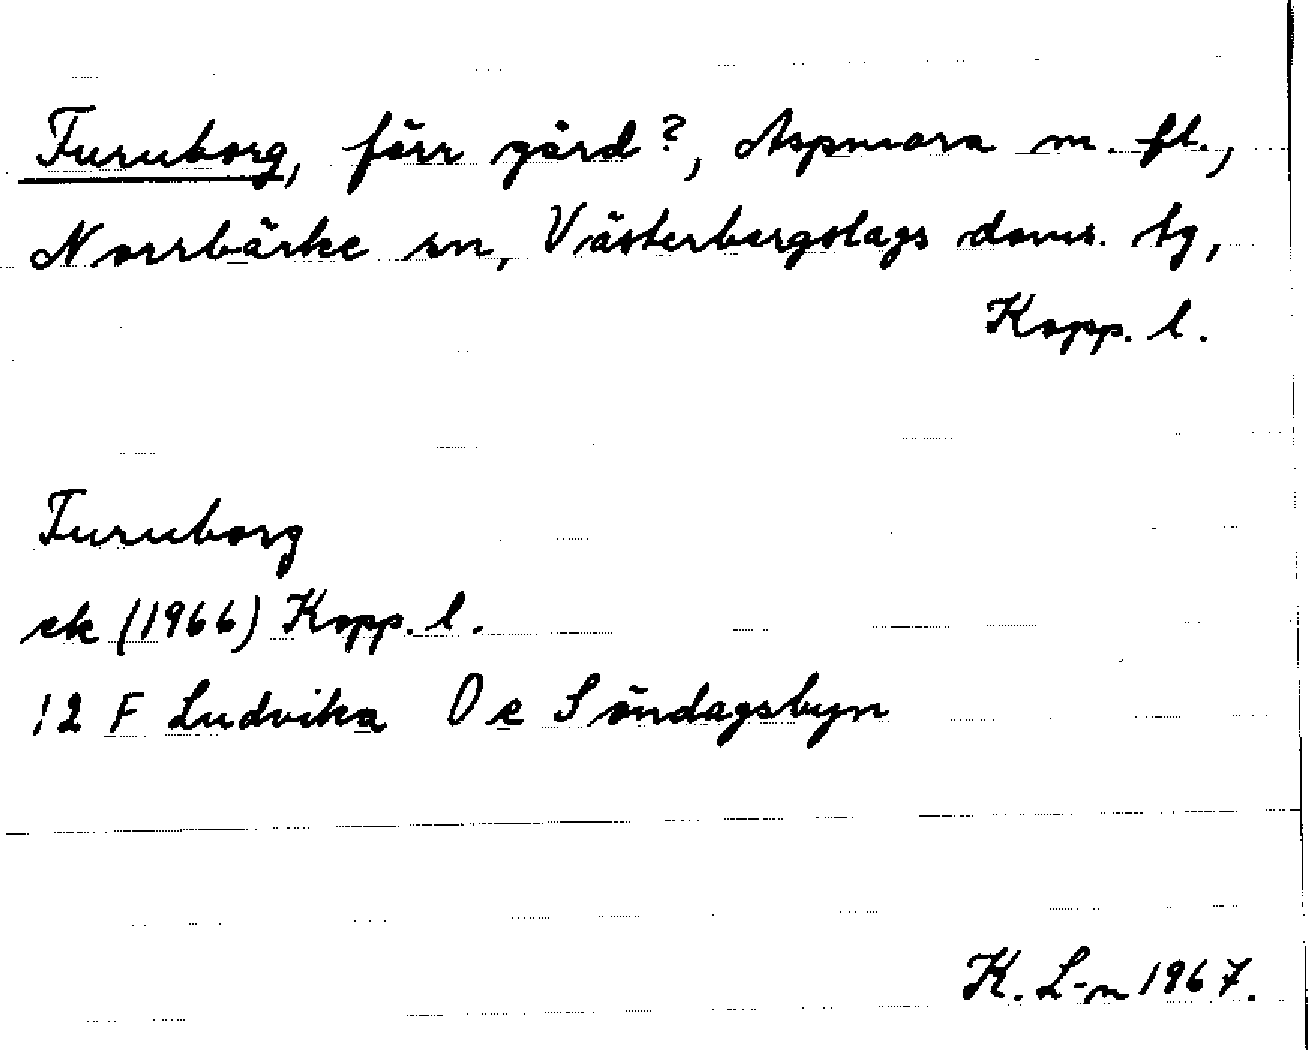 Furuborg, förr gård?, Aspmora m. fl.,
Norrbärke sn, Västerbergslags doms. tg,
Kopp. l.
Furuborg
ek (1966) Kopp. l.
12 F Ludvika O e Söndagsbyn
K. L-n 1967.